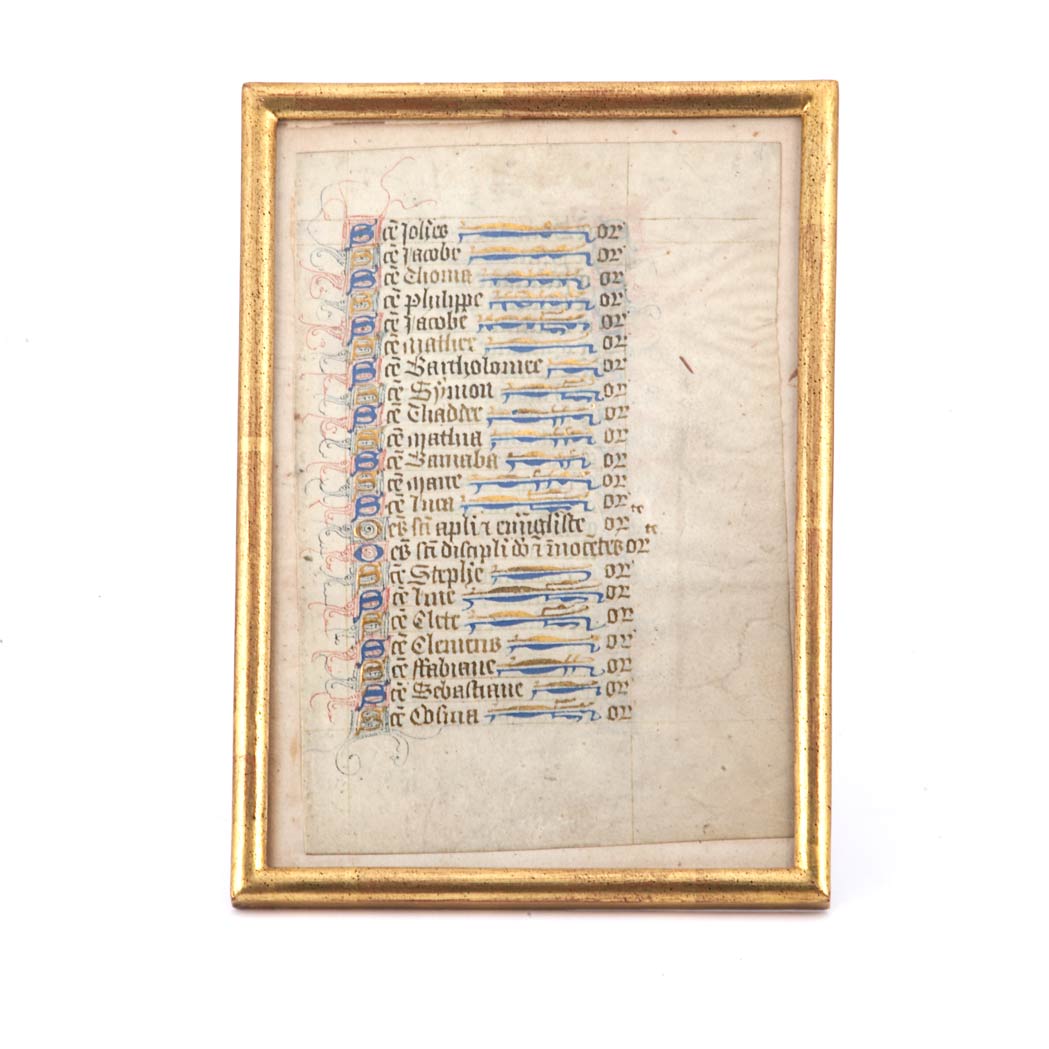 Scē Joh̄es or
Scē Jacobe or
Scē Thoma or
Scē Philippe or
Scē Jacobe or
Scē Mathee or
Scē Bartholomee or
Scē Symon or
Scē Thaddee or
Scē Mathia or
Scē Barnaba or
Scē Marce or
Scē Luca or
Oēs sc̄i apl̄i ⁊ euu̅gliste or
Oēs sc̄i discipl̄i dn̄i ⁊ īnocētes or
Scē Stephe or
Scē Line or
Scē Clete or
Scē Clemens or
Scē ffabiane or
Scē Sebastiane or
Scē Cosma or